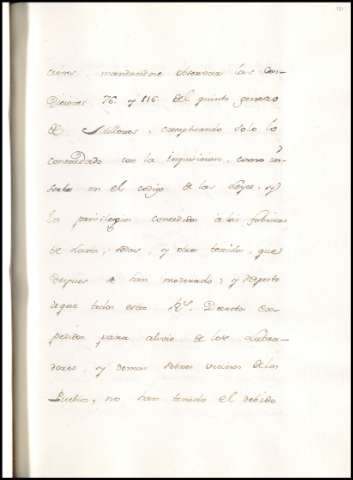 mandandose observar las con-
diciones 76. y 116 del quinto genero
de Millones, cumpliendo solo lo
concordado con la Inquisicion, como
en el codigo de las Leyes, y
los privilegios concedidos a las fabricas
de Lana, sedas, y otros texidos, que
despues se han moderado; y respecto
que todos estos Rs. Decretos expe-
pedidos para alivio de los Labra-
dores, y demas Pobres vecinos de los
Pueblos, no han tenido el debido